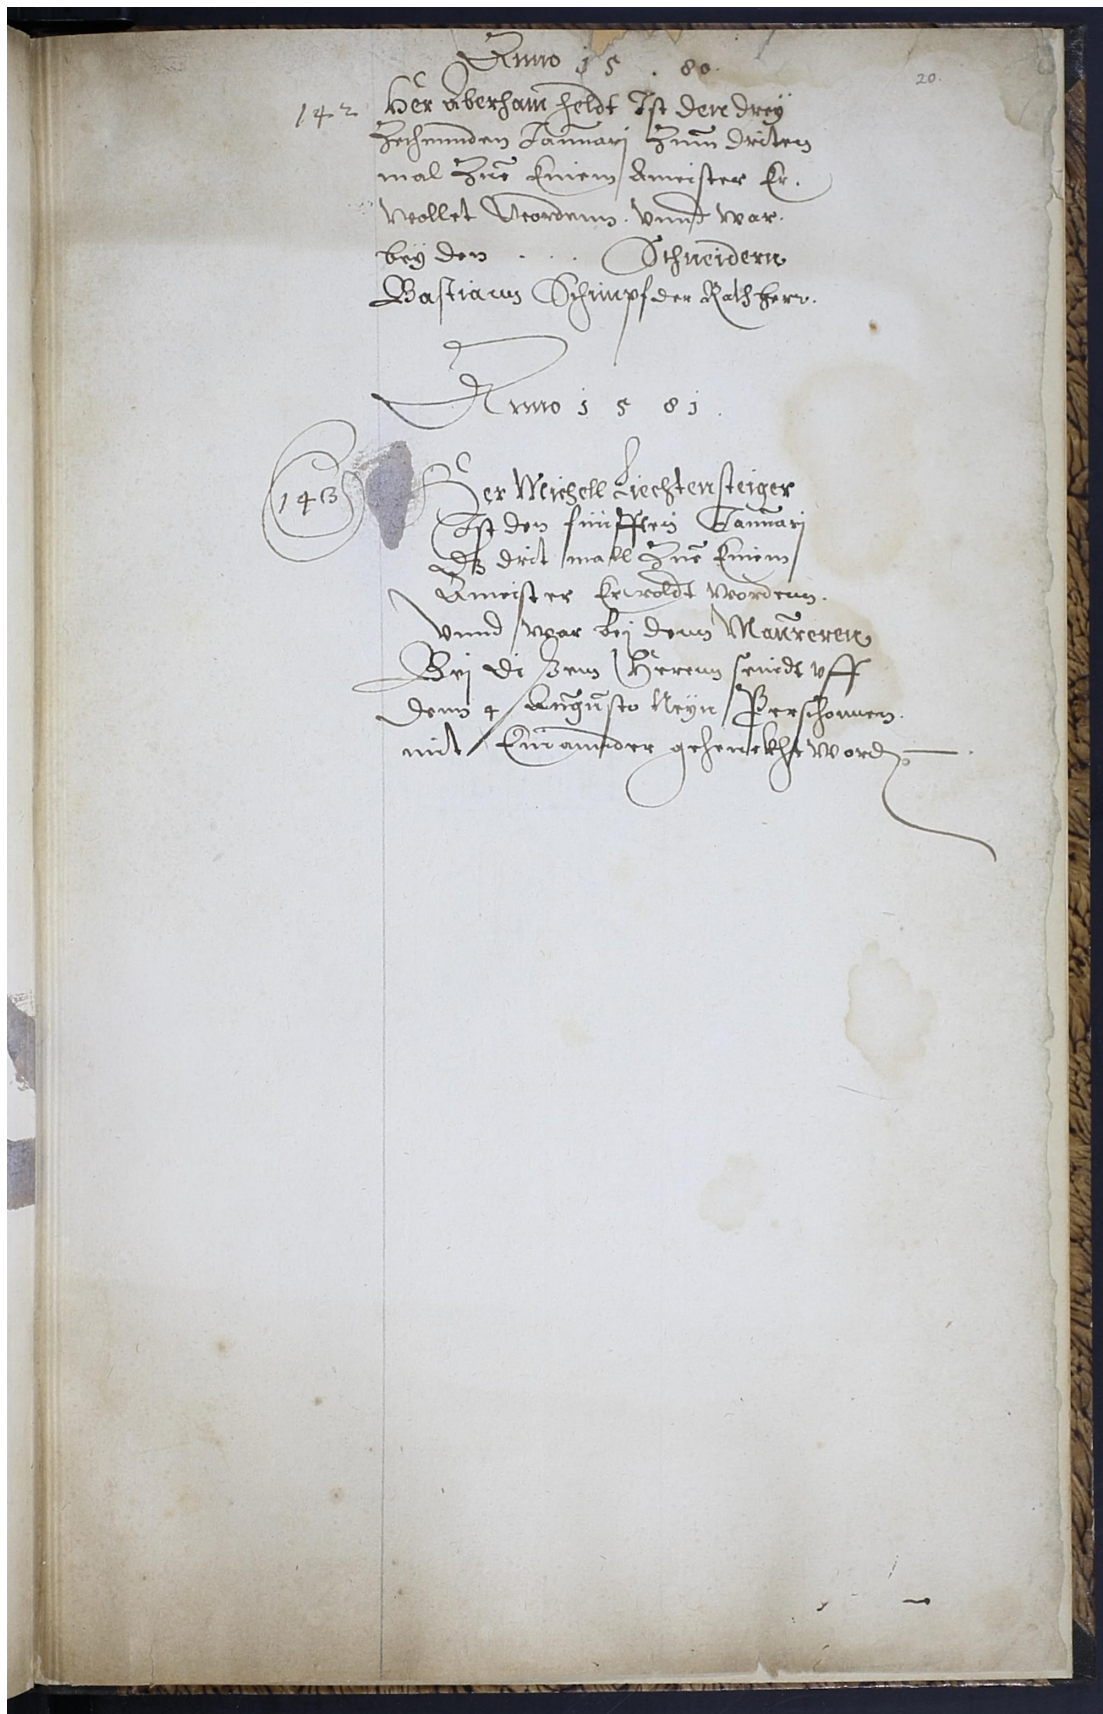 Anno 1 5 . 80.
20.
142 Her Aberham heldt Ist den drey
Zechennden Januarj Zum driten
mal Zue Einem Ameister Er.
wollet Wordenn. vnnd war.
bey den . . . Schneidern
Bastiann Schimpf der Rathherr.
Anno 1 5 81.
143 Her Michell Liechtensteiger
Ist den fünfften Januarj
dz drit mall Zue Einem
Ameister Erwoldt wordenn.
vnnd war bej denn Maureren
Bej disem Herenn seindt vff
denn 4 Augusto Neyn Perschonnen.
mit Einannder gehenckht word